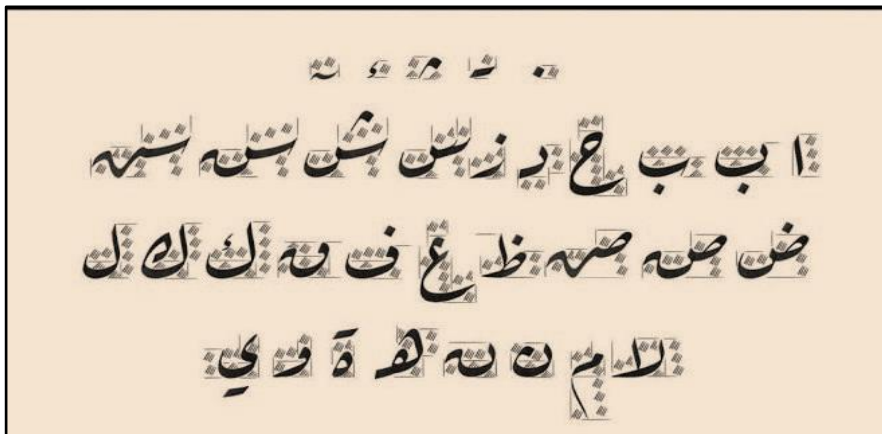 ا ب ب ح د ز س ش س س
ض ص ص ظ ع ف ق ك ك ل
لا م ن ن ه ة و ي